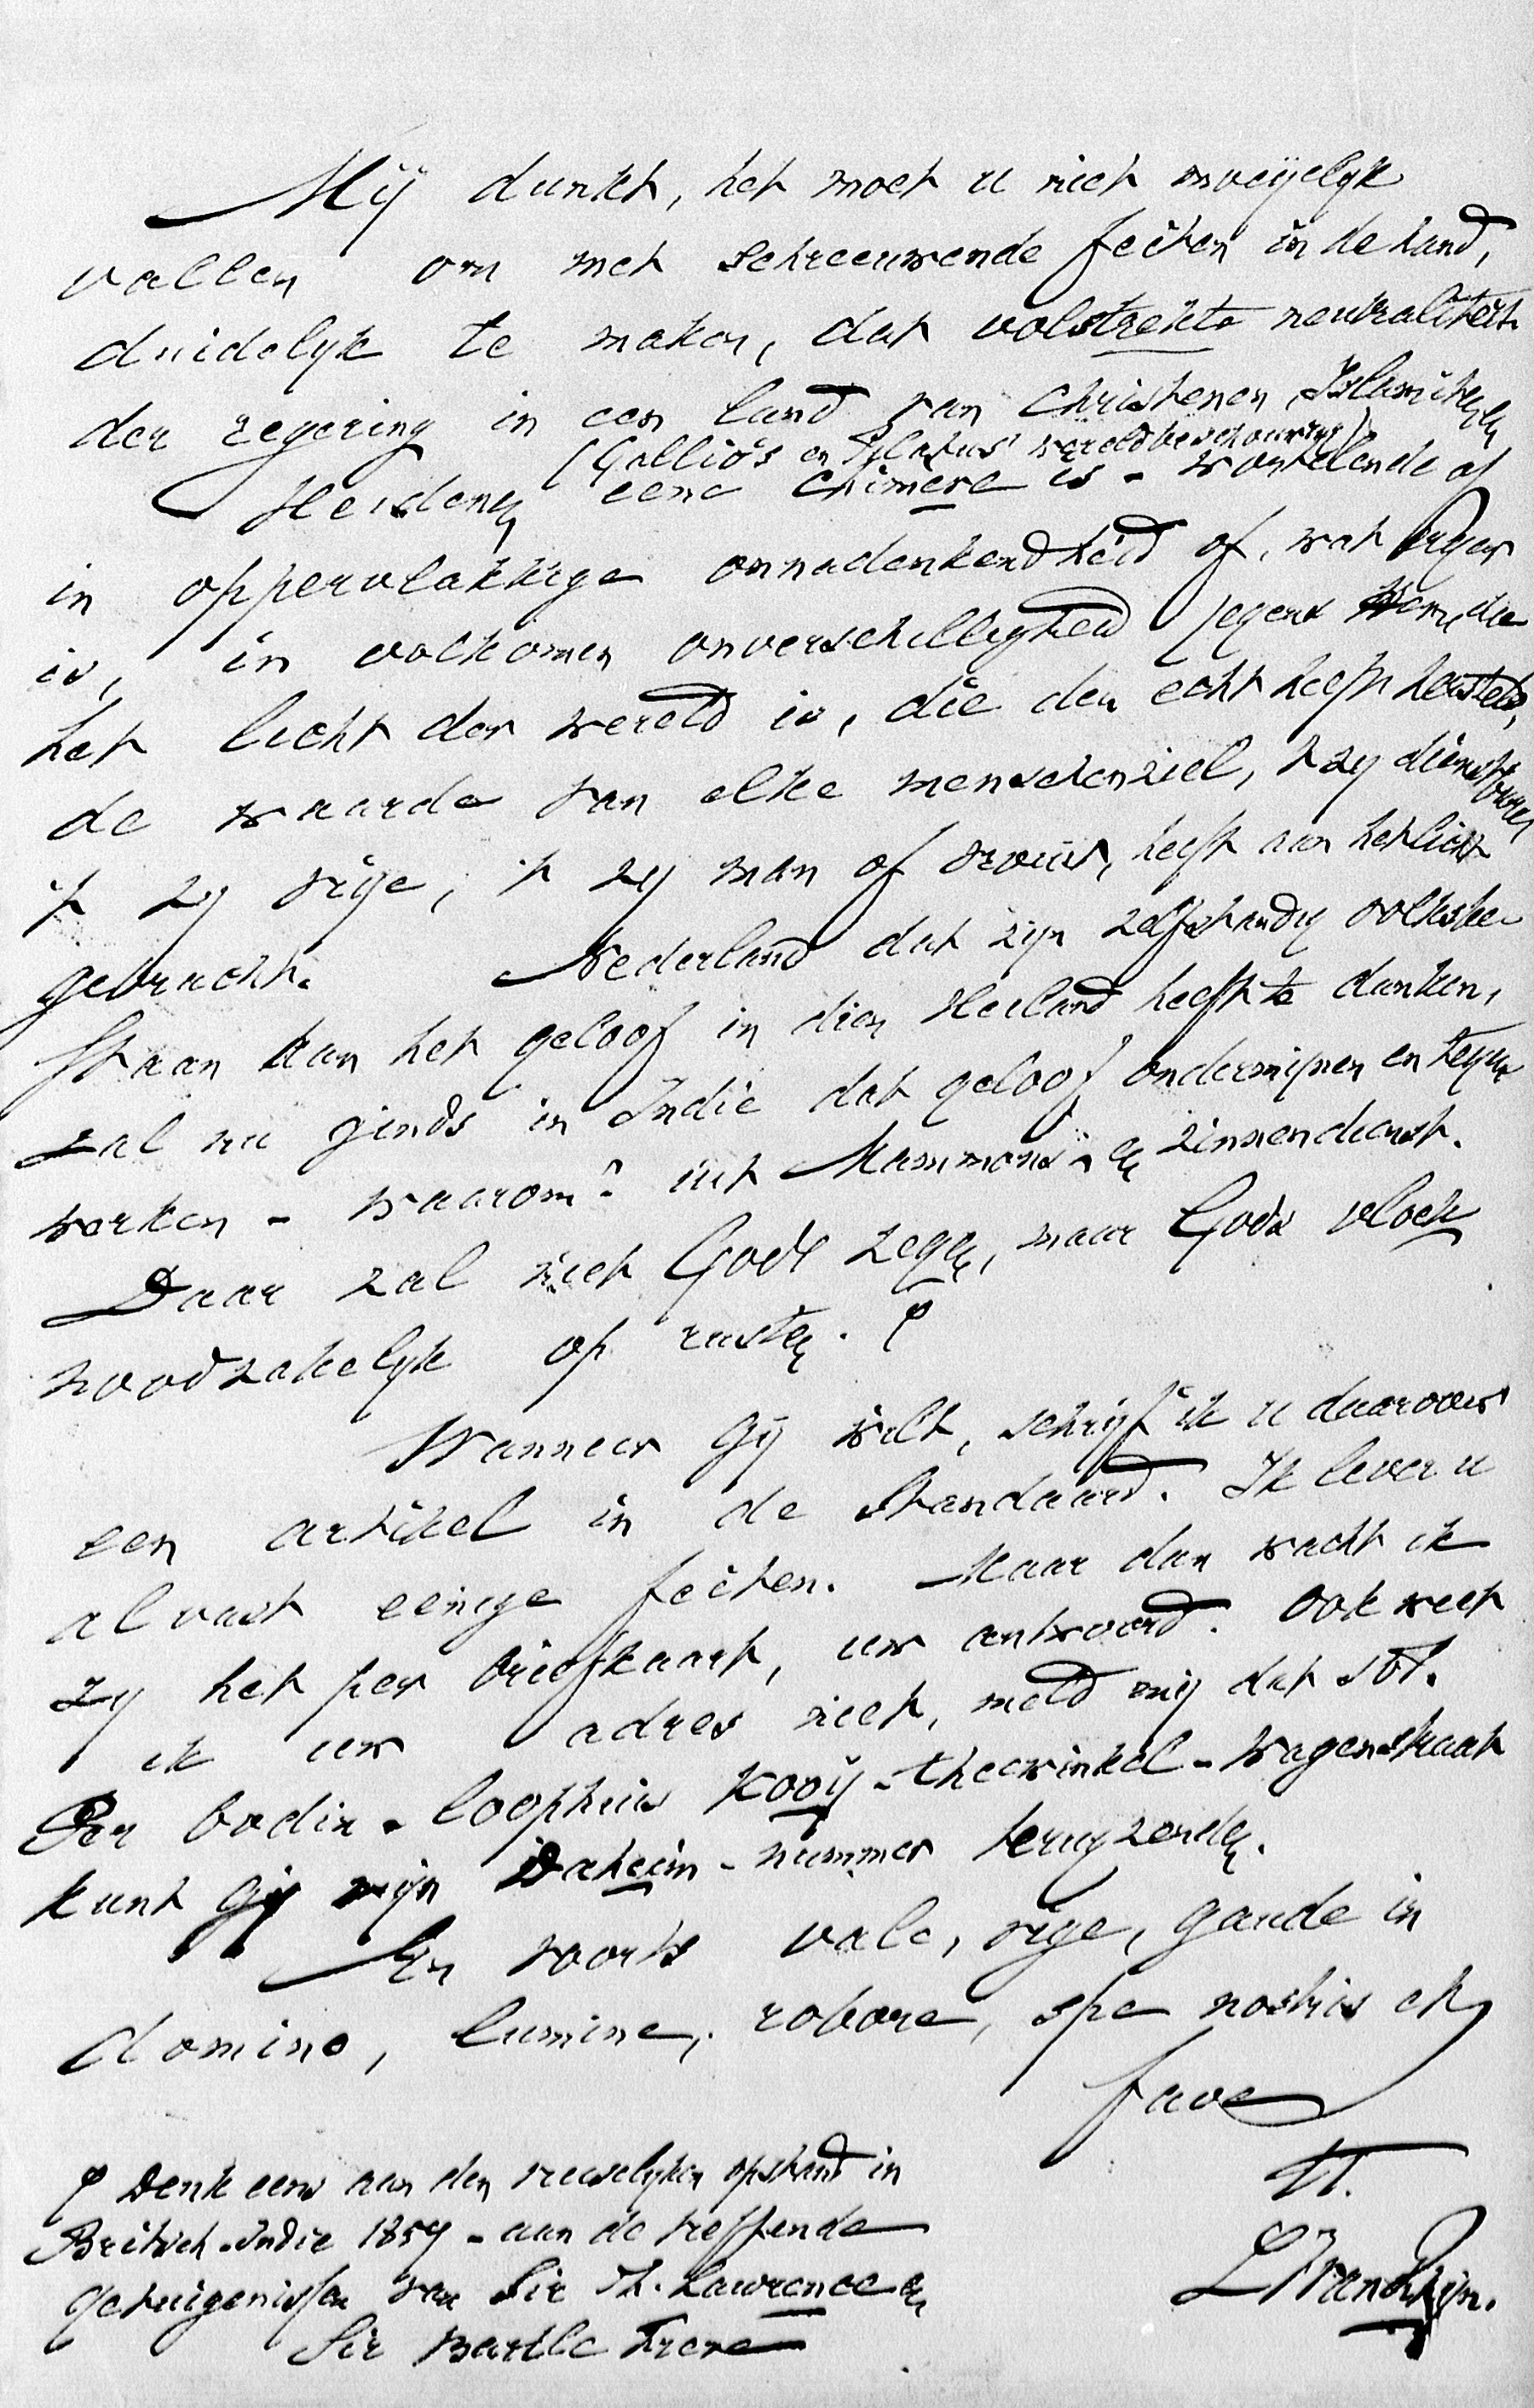 Mij dunkt, het moet u niet moeijelyk
vallen om met schreeuwende feiten in de hand,
duidelyk te maken, dat volstrekte neutraliteit
der regering in een land van Christenen, Islamiten en
(Gallio's en Pilatus' wereldbeschouwing)
Heidenen eene chimère is - wortelende of
in oppervlakkige onnadenkendheid of, wat erger
is, in volkomen onverschilligheid jegens Hem, die
het licht der wereld is, die den echt heeft hersteld,
de waarde van elke menschenziel, 't zy dienstbare
't zy vrije, 't zy man of vrouw, heeft aan het licht
gebracht. Nederland dat zijn zelfstandig volksbe-
staan aan het geloof in dien Heiland heeft te danken,
zal nu ginds in Indie dat geloof ondermijnen en tegen
werken - waarom? uit Mammons- en zinnendienst.
Daar zal niet Gods zegen, maar Gods vloek
noodzakelyk op rusten. φ
Wanneer gij wilt, schrijf ik u daarover
een artikel in de Standaard. Ik lever u
alvast eenige feiten. Maar dan wacht ik
zy het per briefkaart, uw antwoord. Ook weet
ik uw adres niet, meld mij dat s.v.p.
Per bodin - loophuis Kooij - theewinkel - Wagenstraat
kunt gij mijn Daheim - nummer terugzenden.
En voorts vale, vige, gaude in
domino, lumine, robore, spe nostris et
fave
tt.
L. v. Rhijn.
φ Denk eens aan den vreeselyken opstand in
Britsch-Indie 1857 - aan de treffende
getuigenissen van Sir Th. Lawrence en
Sir Bartle Frere